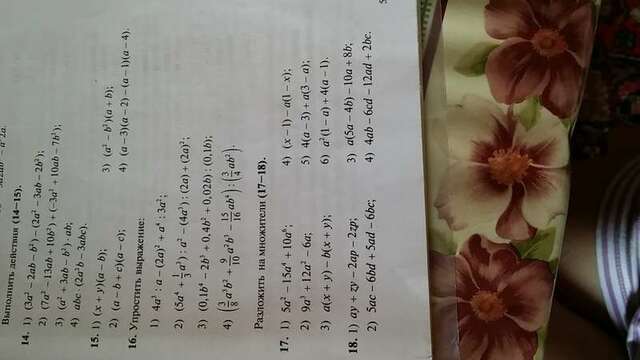 Выполнить действия (14—15).
14. 1) (3a² – 2ab – b²) – (2a² – 3ab – 2b²);
2) (7a² – 13ab + 10b²) + (–3a² + 10ab – 7b²);
3) (a² + 3ab – b²) · ab;
4) abc · (2a²b – 3abc).
15. 1) (x + y)(a – b);
2) (a – b + c)(a – c);
3) (a² – b²)(a + b);
4) (a – 3)(a – 2) – (a – 1)(a – 4).
16. Упростить выражение:
1) 4a³ : a – (2a)² + a⁴ : 3a²;
2) (5a⁴ + 1/3 a³) : a² – (4a³) : (2a) + (2a)²;
3) (0,1b⁴ – 2b³ + 0,4b² + 0,02b) : (0,1b);
4) (3/8 a³b² + 9/10 a²b³ – 15/16 ab⁴) : (3/4 ab²).
Разложить на множители (17—18).
17. 1) 5a² – 15a⁴ + 10a⁶;
2) 9a³ + 12a² – 6a;
3) a(x + y) – b(x + y);
4) (x – 1) – a(1 – x);
5) 4(a – 3) + a(3 – a);
6) a²(1 – a) + 4(a – 1).
18. 1) ay + zy – 2ap – 2zp;
2) 5ac – 6bd + 5ad – 6bc;
3) a(5a – 4b) – 10a + 8b;
4) 4ab – 6cd – 12ad + 2bc.